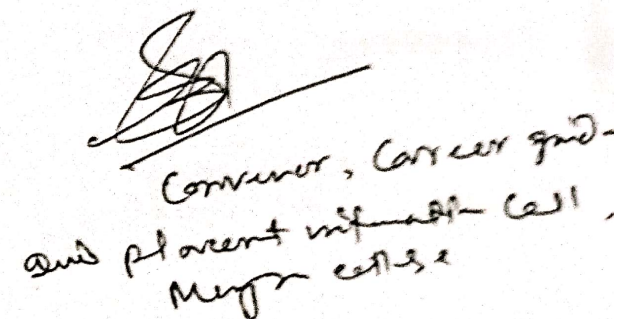 Convenor, Career guid-
and placement information Cell,
college